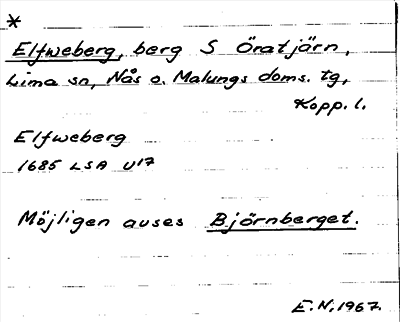 *
Elfweberg, berg S Öratjärn,
Lima sn, Nås o. Malungs doms. tg,
Kopp. l.
Elfweberg
1685 LSA U17
Möjligen avses Björnberget.
E.N. 1967